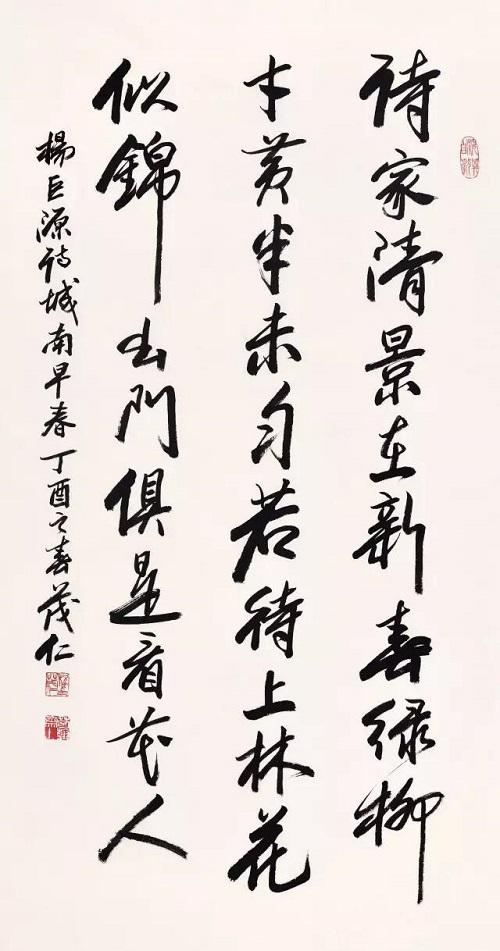 诗家清景在新春绿柳
才黄半未匀若待上林花
似錦出門俱是看花人
楊巨源诗城南早春丁酉之春茂仁